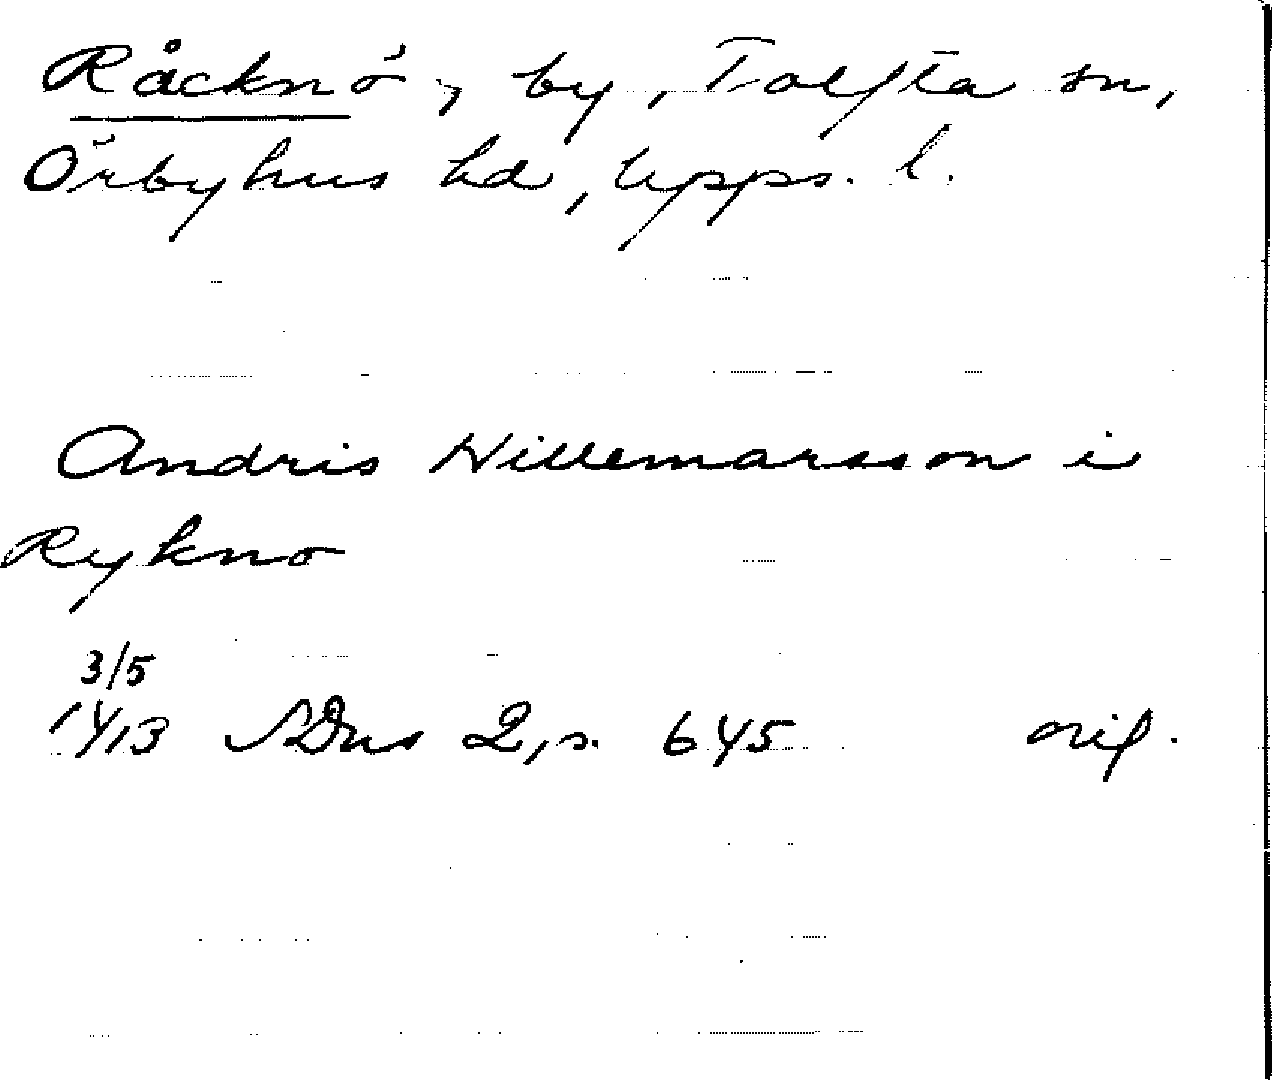 Råcknö, by, Tolfta sn,
Örbyhus hd, Upps. l.
Andris Hillemarsson i
Rykno
3/5
1413 SDns 2, s. 645 orig.